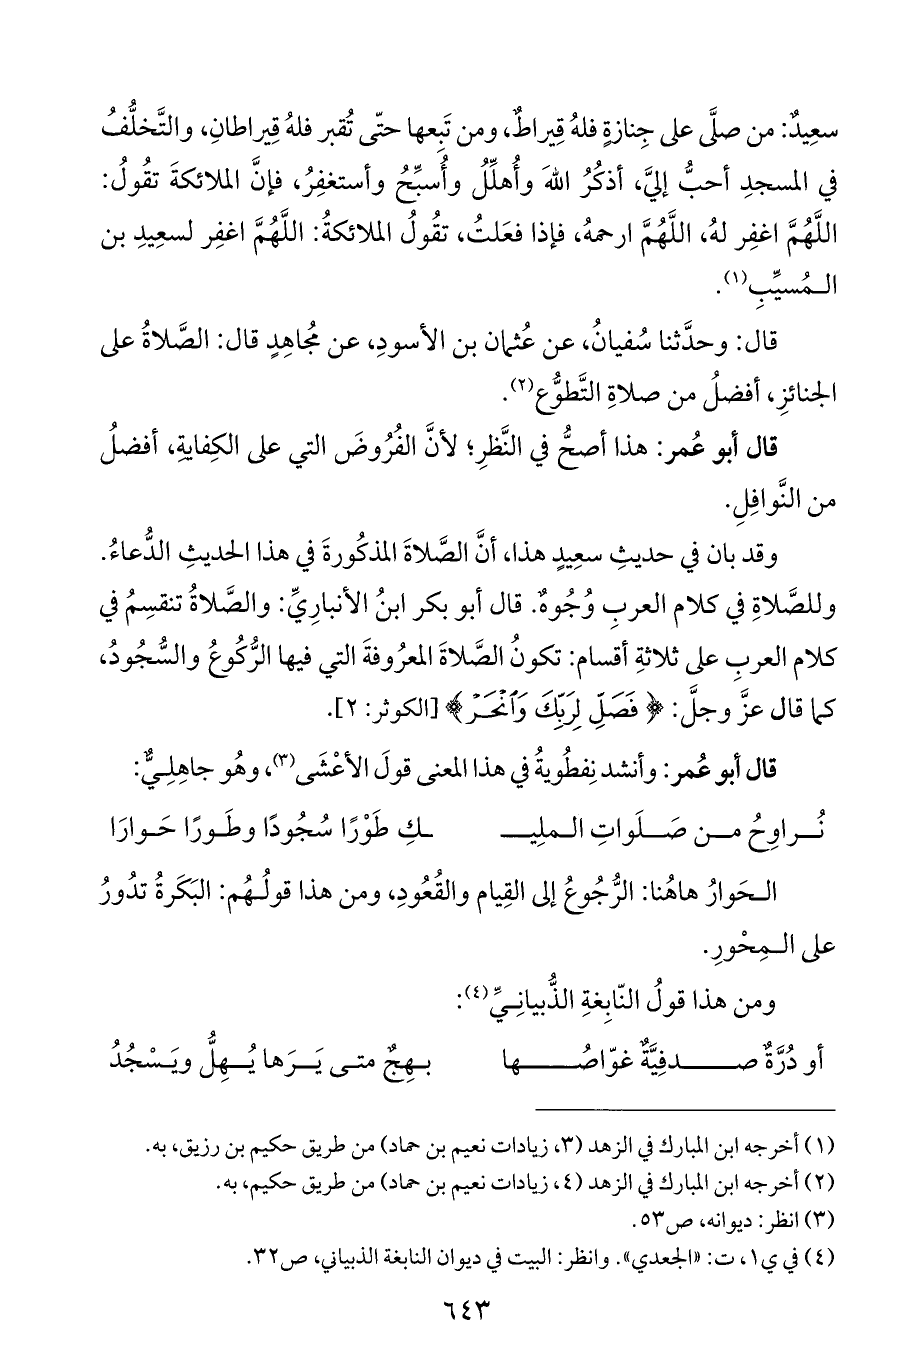 سعِيدٌ: من صلَّى على جِنازةٍ فلهُ قِيراطٌ، ومن تَبِعها حتّى تُقبر فلهُ قِيراطانِ، والتَّخلُّفُ
في المسجدِ أحبُّ إليَّ، أذكُرُ اللهَ وأُهلِّلُ وأُسبِّحُ وأستغفِرُ، فإنَّ الملائكةَ تقُولُ:
اللَّهُمَّ اغفِر لهُ، اللَّهُمَّ ارحمهُ، فإذا فعَلتُ، تقُولُ الملائكةُ: اللَّهُمَّ اغفِر لسعِيدِ بن
الـمُسيِّبِ(١).
قال: وحدَّثنا سُفيانُ، عن عُثمان بن الأسودِ، عن مُجاهِدٍ قال: الصَّلاةُ على
الجنائزِ، أفضلُ من صلاةِ التَّطوُّع(٢).
قال أبو عُمر: هذا أصحُّ في النَّظرِ؛ لأنَّ الفُرُوضَ التي على الكِفايةِ، أفضلُ
من النَّوافِلِ.
وقد بان في حديثِ سعِيدٍ هذا، أنَّ الصَّلاةَ المذكُورةَ في هذا الحديثِ الدُّعاءُ.
وللصَّلاةِ في كلام العربِ وُجُوهٌ. قال أبو بكر ابنُ الأنباريِّ: والصَّلاةُ تنقسِمُ في
كلام العربِ على ثلاثةِ أقسام: تكونُ الصَّلاةَ المعرُوفةَ التي فيها الرُّكُوعُ والسُّجُودُ،
كما قال عزَّ وجلَّ: ﴿فَصَلِّ لِرَبِّكَ وَٱنْحَرْ﴾ [الكوثر: ٢].
قال أبو عُمر: وأنشد نِفطُويةُ في هذا المعنى قولَ الأعْشَى(٣)، وهُو جاهِلِـيٌّ:
نُـراوِحُ مـن صَـلَواتِ الـملِيـ ـكِ طَوْرًا سُجُودًا وطَـورًا حَـوارَا
الـحَوارُ هاهُنا: الرُّجُوعُ إلى القِيام والقُعُودِ، ومن هذا قولُـهُم: البَكَرةُ تدُورُ
على الـمِحْورِ.
ومن هذا قولُ النّابِغةِ الذُّبيانِـيِّ(٤):
أو دُرَّةٌ صـدفِيَّةٌ غوّاصُـها بـهِجٌ متـى يَـرَها يُـهِلُّ ويَـسْجُدُ
(١) أخرجه ابن المبارك في الزهد (٣، زيادات نعيم بن حماد) من طريق حكيم بن رزيق، به.
(٢) أخرجه ابن المبارك في الزهد (٤، زيادات نعيم بن حماد) من طريق حكيم، به.
(٣) انظر: ديوانه، ص٥٣.
(٤) في ي١، ت: «الجعدي». وانظر: البيت في ديوان النابغة الذبياني، ص٣٢.
٦٤٣